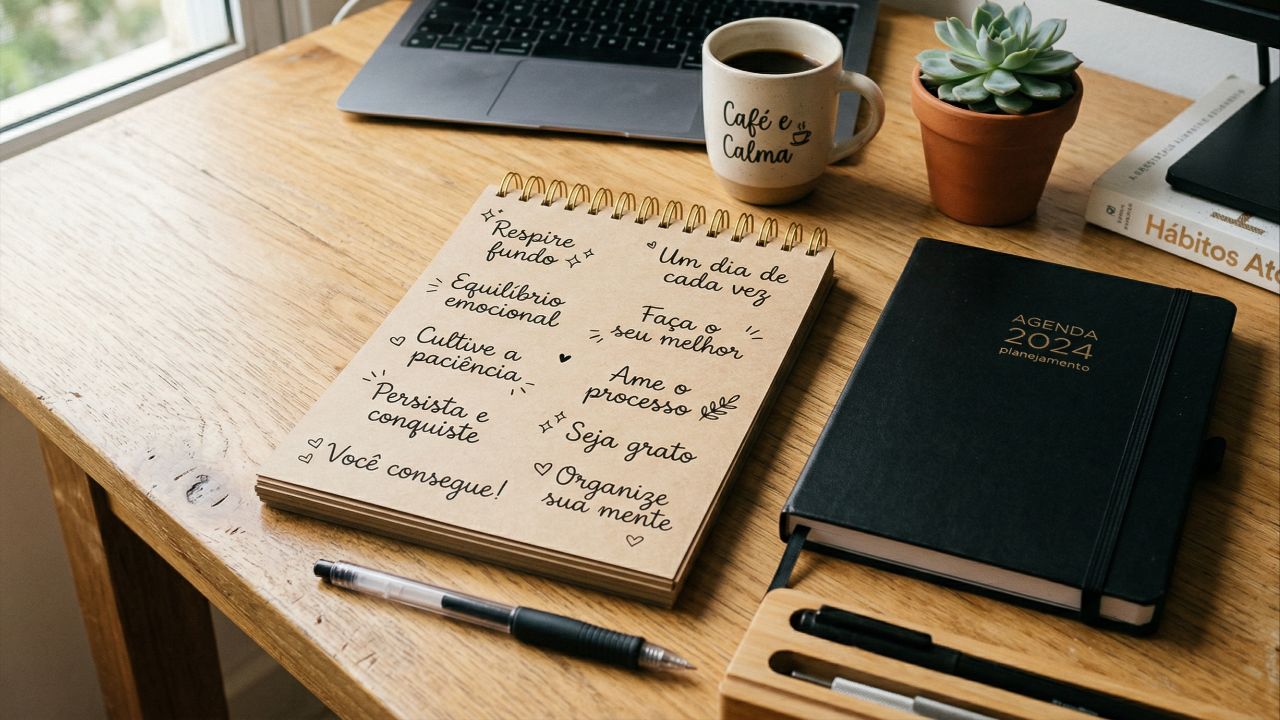 Café e
Calma
Respire
fundo
Equilíbrio
emocional
Cultive a
paciência
Persista e
conquiste
Você consegue!
Um dia de
cada vez
Faça o
seu melhor
Ame o
processo
Seja grato
Organize
sua mente
AGENDA
2024
planejamento
Hábitos